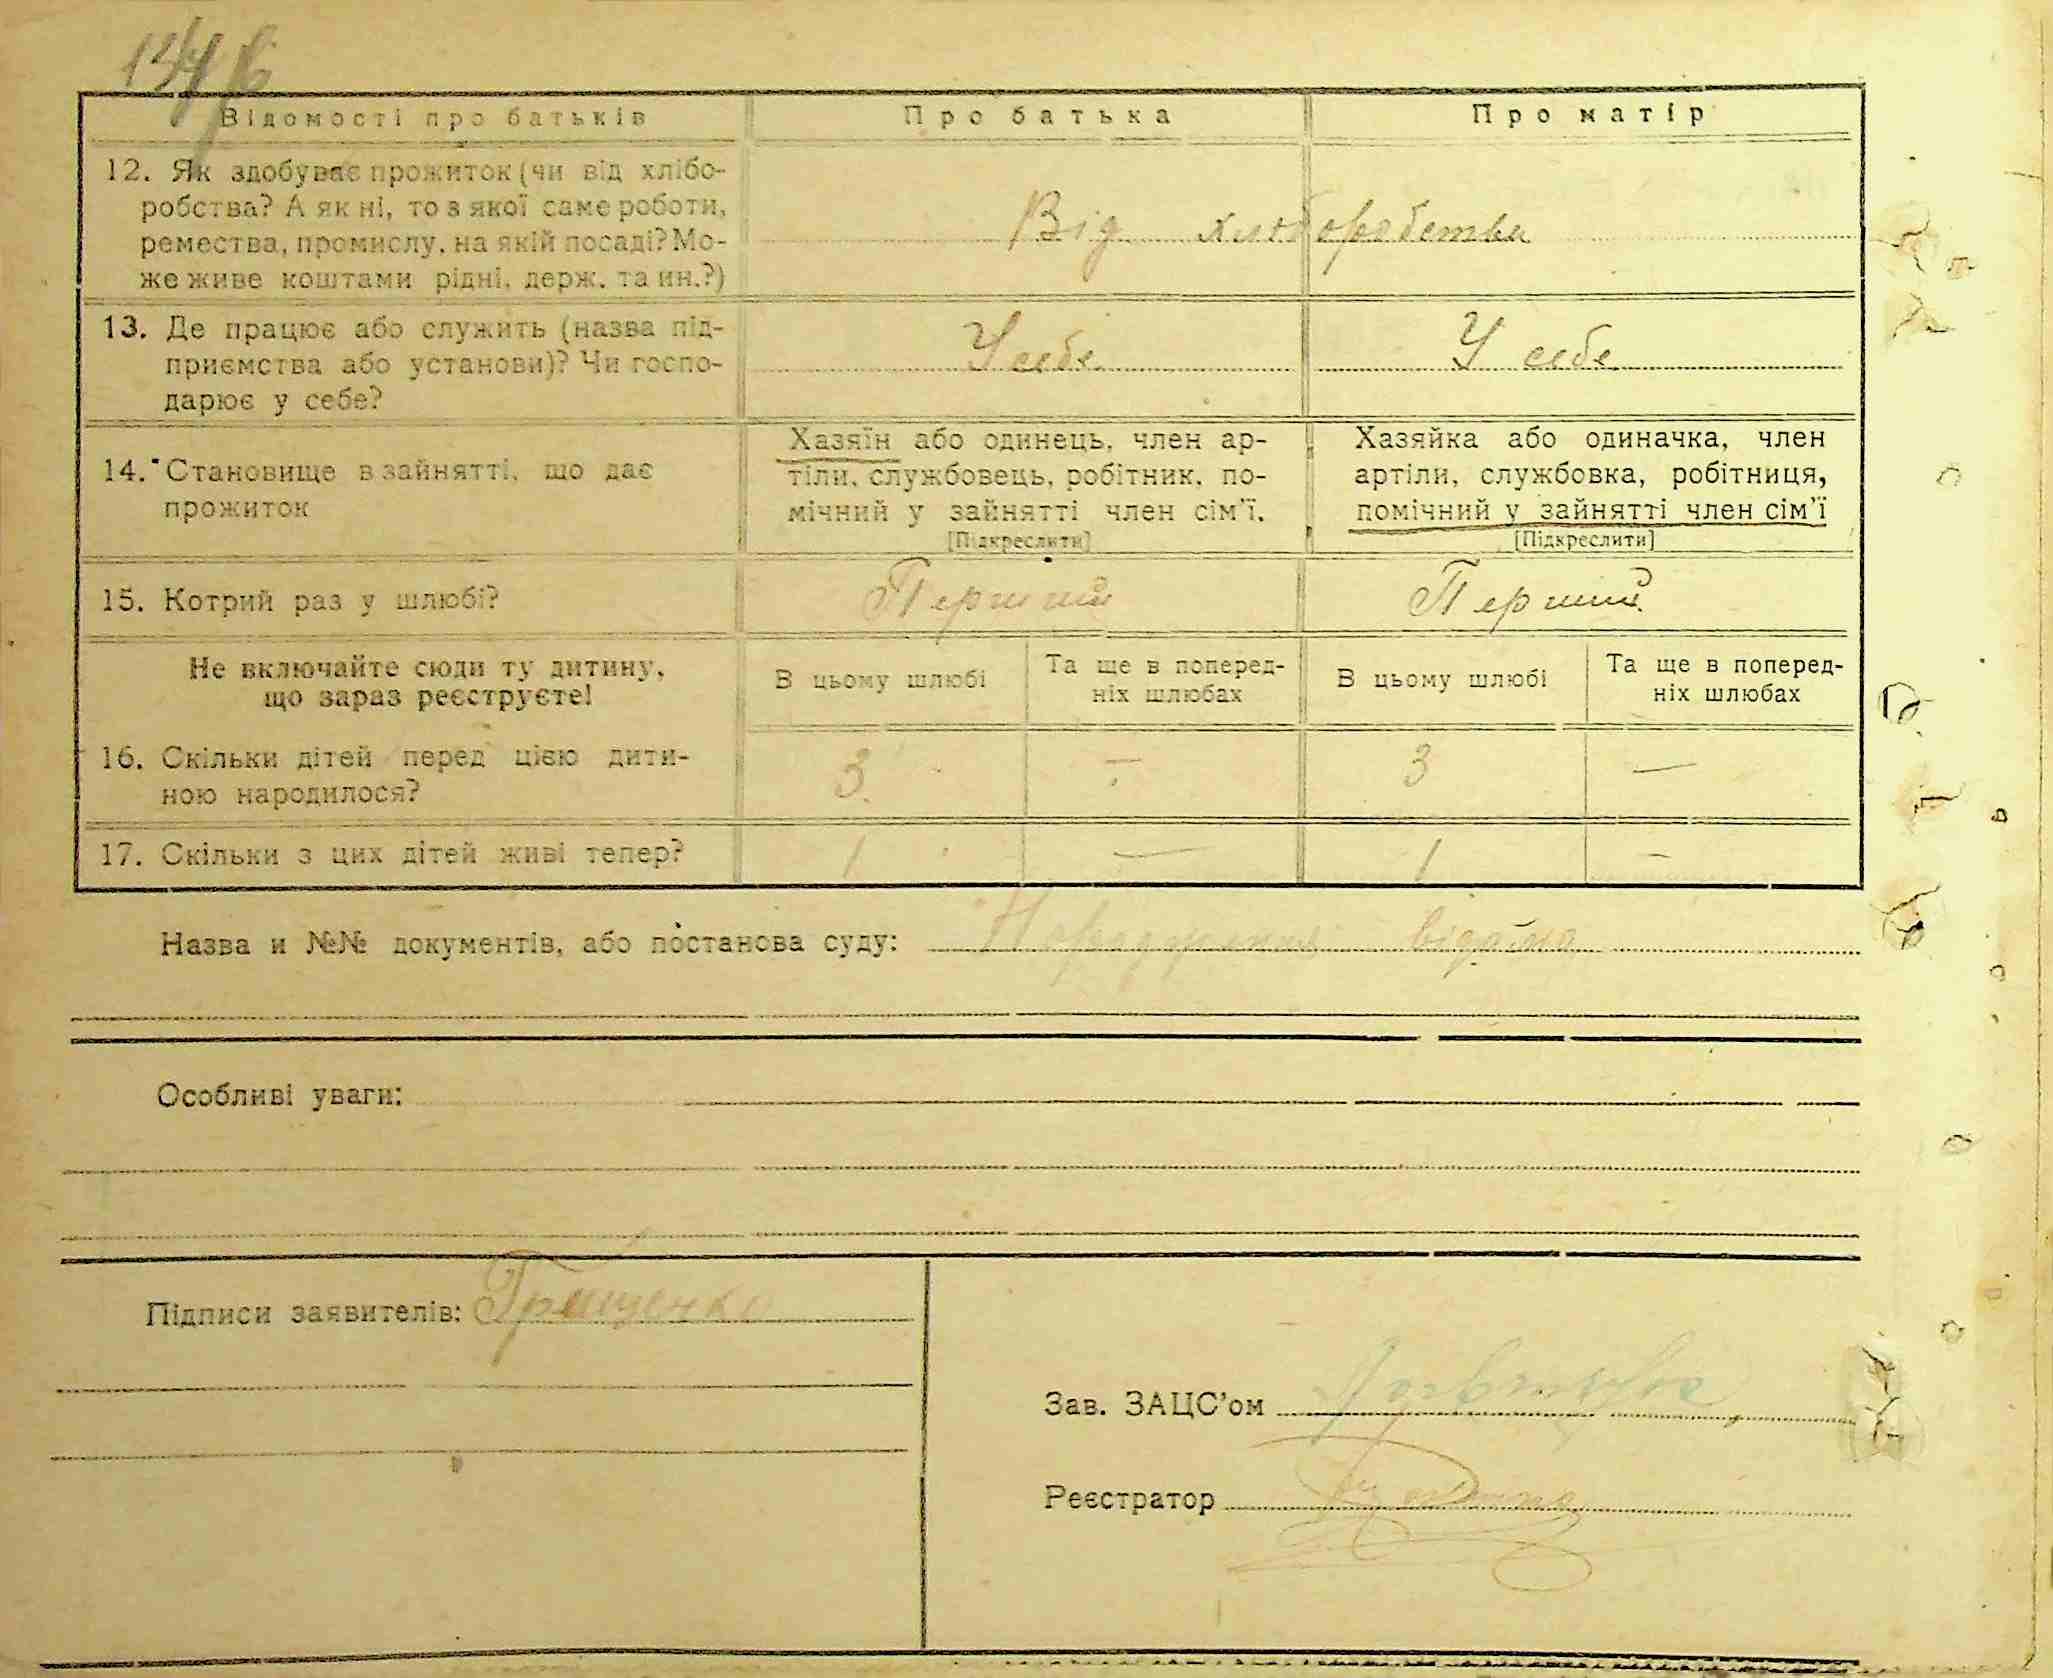 Відомості про батьків Про батька Про матір
12. Як здобуває прожиток (чи від хлібо-
робства? А як ні, то з якої саме роботи,
ремества, промислу, на якій посаді? Мо-
же живе коштами рідні, держ. та ин.?)
Від хліборобства
13. Де працює або служить (назва під-
приємства або установи)? Чи госпо-
дарює у себе?
У себе У себе
14. Становище в зайнятті, що дає
прожиток
Хазяїн або одинець, член ар-
тіли, службовець, робітник, по-
мічний у зайнятті член сім'ї.
[Підкреслити]
Хазяйка або одиначка, член
артіли, службовка, робітниця,
помічний у зайнятті член сім'ї
[Підкреслити]
15. Котрий раз у шлюбі? Перший Перший
Не включайте сюди ту дитину,
що зараз реєструєте!
В цьому шлюбі
Та ще в поперед-
ніх шлюбах
В цьому шлюбі
Та ще в поперед-
ніх шлюбах
16. Скільки дітей перед цією дити-
ною народилося?
3 — 3 —
17. Скільки з цих дітей живі тепер? 1 — 1 —
Назва и №№ документів, або постанова суду:
Особливі уваги:
Підписи заявителів: Грищенко
Зав. ЗАЦС'ом
Реєстратор